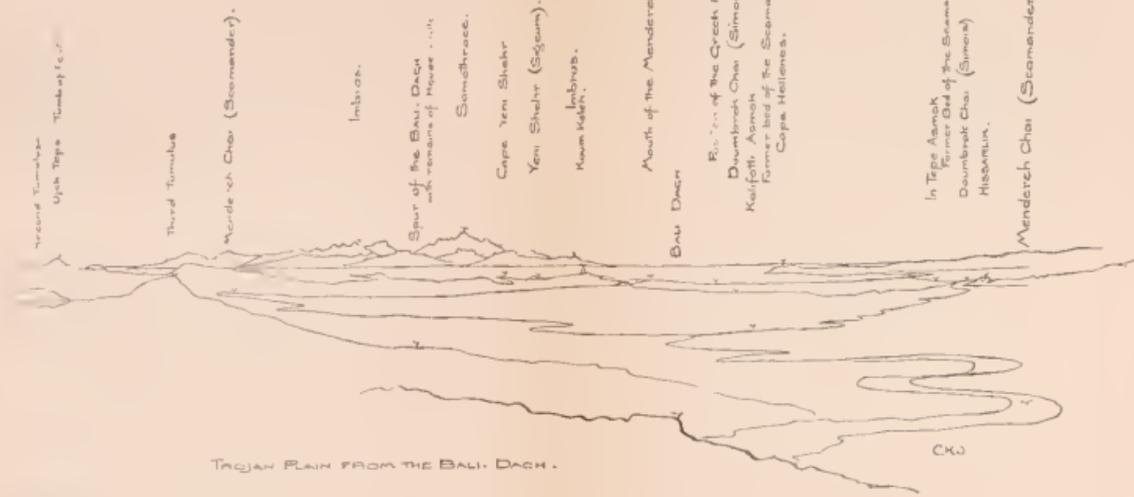 Second Tumulus
Ujek Tepe Tomb of
Third Tumulus
Mendereh Chai (Scamander).
Imbros.
Spur of the BALI. DAGH
with remains of House
Samothrace.
Cape Yeni Shehr
Yeni Shehr (Sigeum).
Imbrus.
Koum Kaleh.
Mouth of the Mendere
BALI DAGH
of the Greek
Doumbrek Chai (Simo
Kalifatli Asmak
Former bed of the Scama
Cape Hellenos.
In Tepe Asmak
Former Bed of the Scama
Doumbrek Chai (Simois)
HISSARLIK.
Mendereh Chai (Scamander
TROJAN PLAIN FROM THE BALI. DAGH.